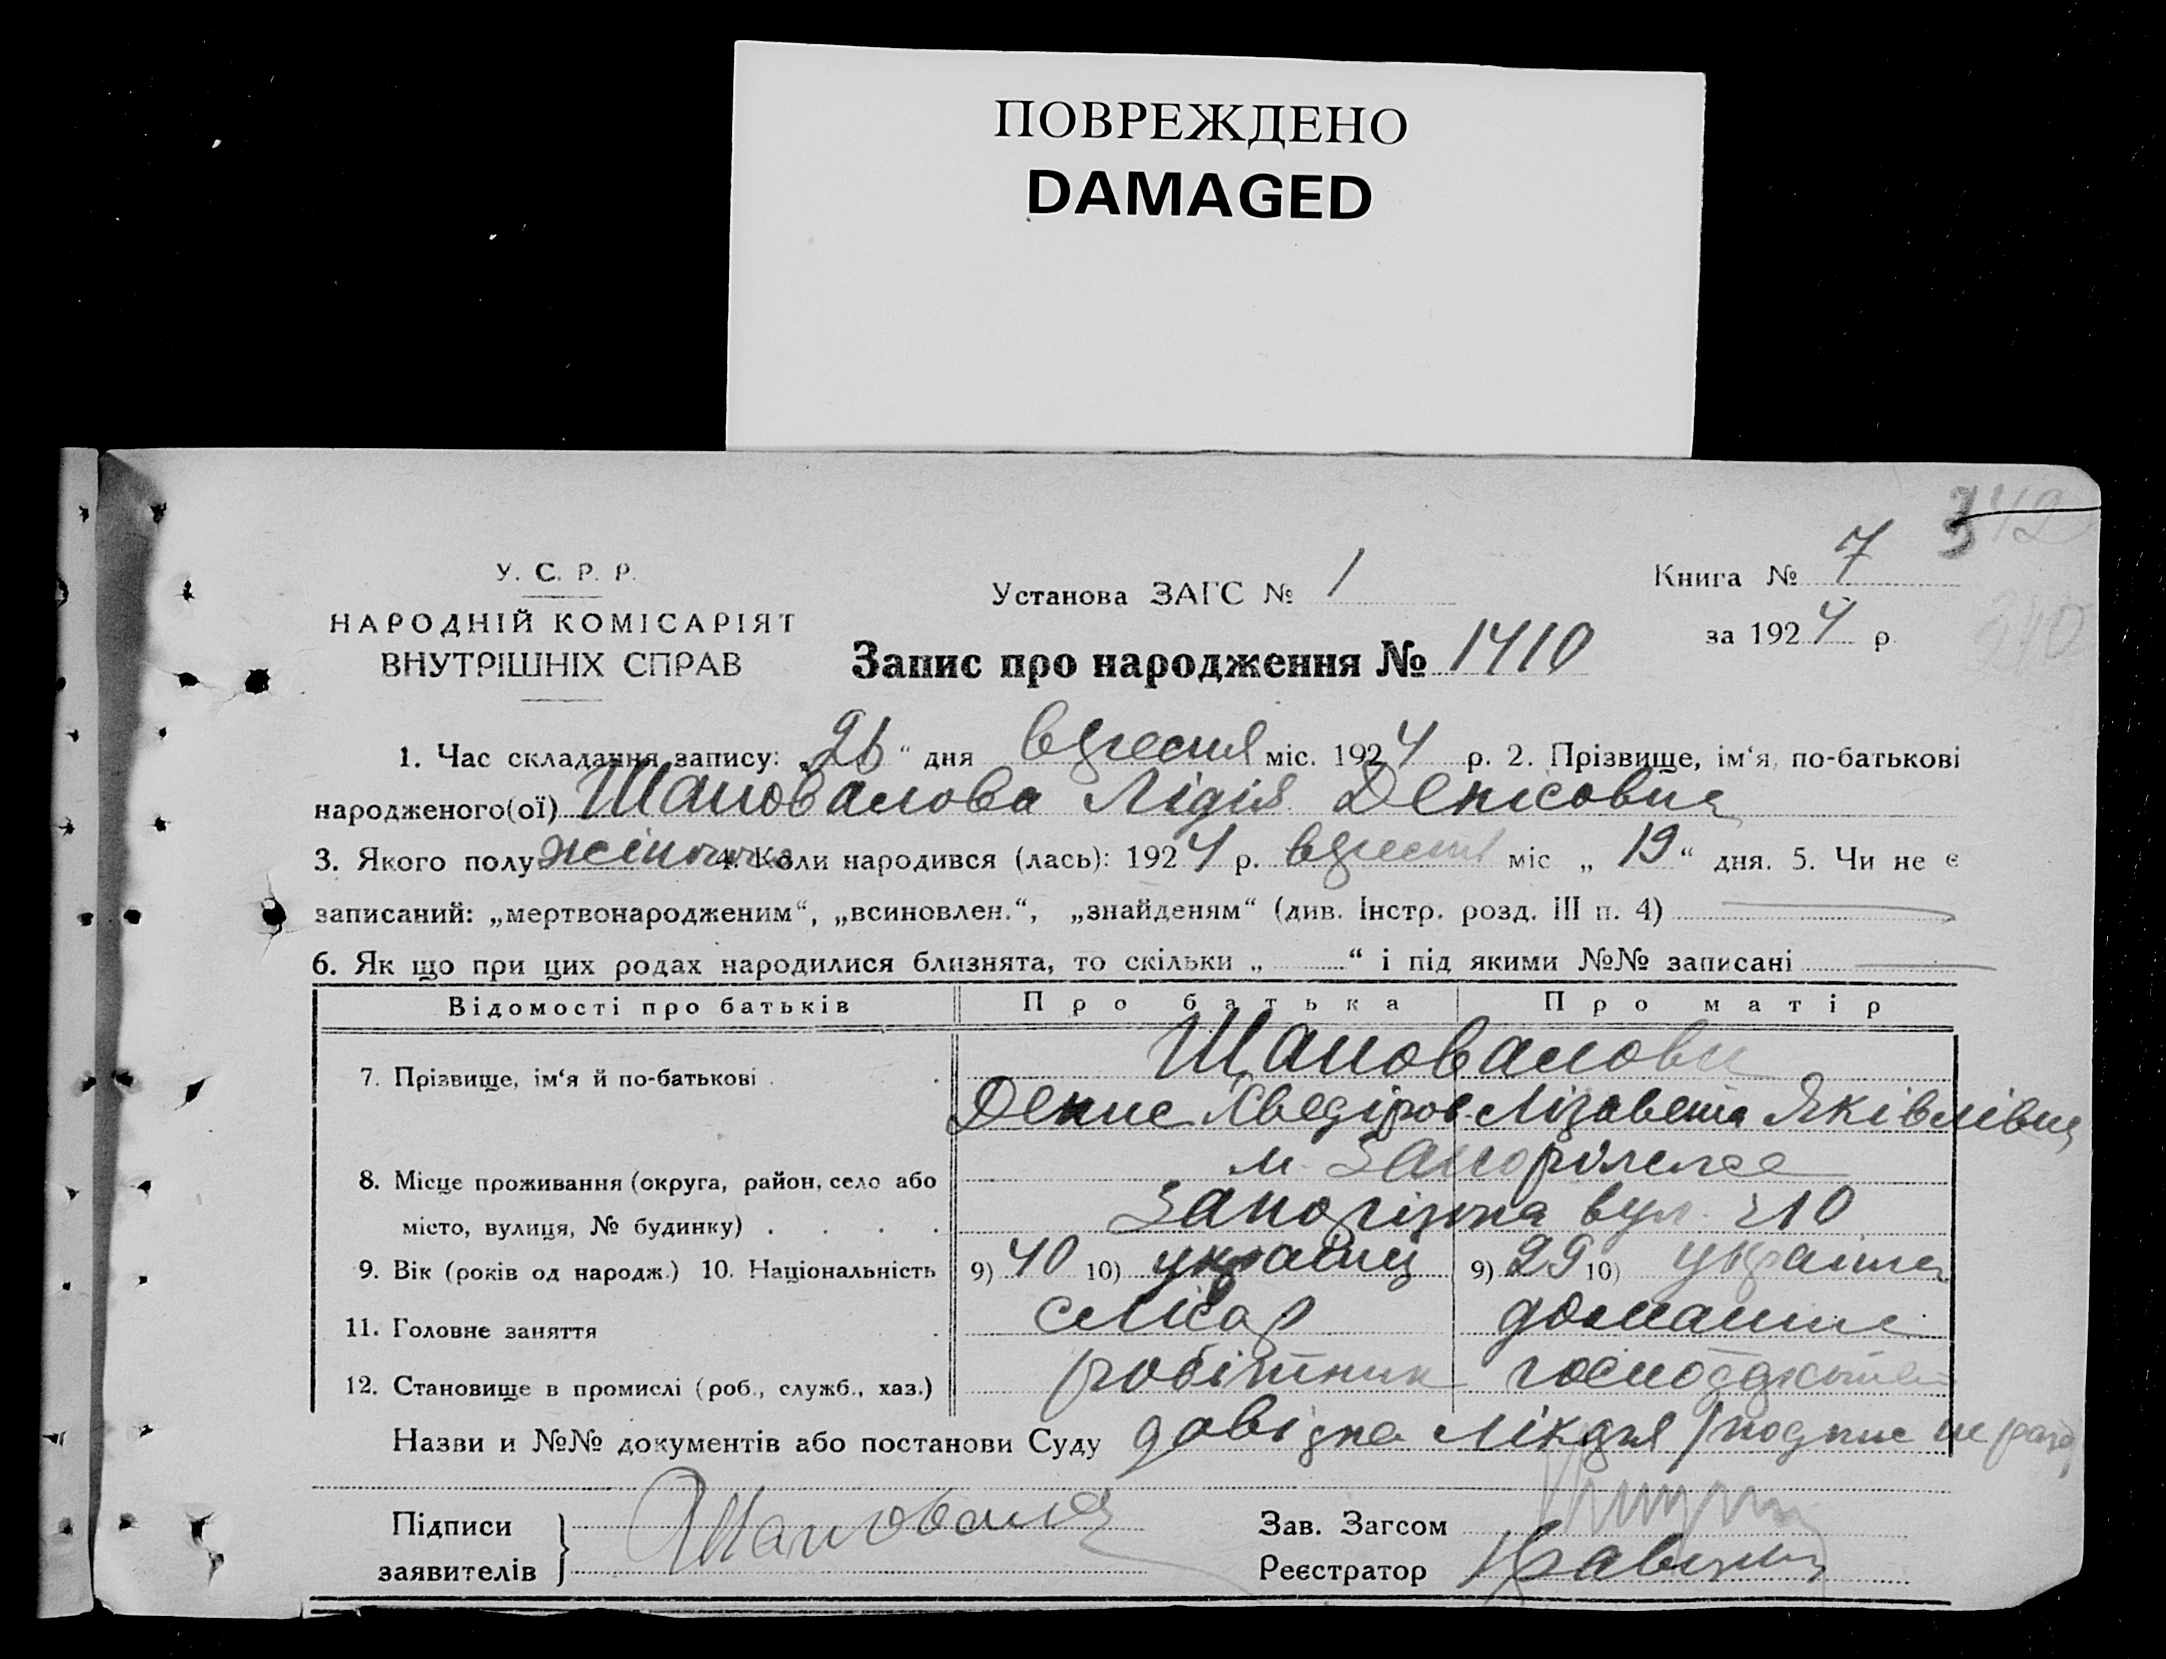 ПОВРЕЖДЕНО
DAMAGED
У. С. Р. Р.
НАРОДНІЙ КОМІСАРІЯТ
ВНУТРІШНІХ СПРАВ
Установа ЗАГС № 1
Книга № 7
за 1924 р
Запис про народження № 1410
1. Час складання запису: „26“ дня вересня міс. 1924 р. 2. Прізвище, ім‘я, по-батькові
народженого(ої) Шаповалова Лідія Денісовна
3. Якого полу жіноча 4. Коли народився (лась): 1924 р. вересня міс „19“ дня. 5. Чи не є
записаний: „мертвонародженим“, „всиновлен.“, „знайденям“ (див. Інстр. розд. III п. 4)
6. Як що при цих родах народилися близнята, то скільки „ “ і під якими №№ записані
Відомості про батьків Про батька Про матір
7. Прізвище, ім‘я й по-батькові Шаповалови
Денис Лізавета Яківлівна
8. Місце проживання (округа, район, село або м. Запоріжжє
місто, вулиця, № будинку) вул. 210
9. Вік (років од народж.) 10. Національність 9) 40 10) українец 9) 29 10) українка
11. Головне заняття слюсар домашнє
12. Становище в промислі (роб., служб., хаз.) робітник
Назви и №№ документів або постанови Суду довідка лікаря подпис
Підписи
заявителів
Шаповалов
Зав. Загсом
Реєстратор